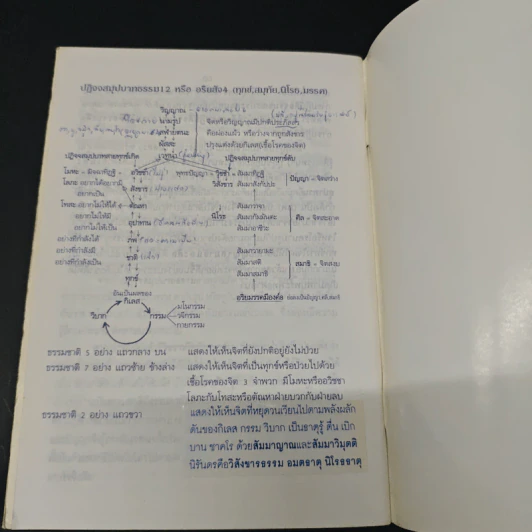 ปฏิจจสมุปบาทธรรม12 หรือ อริยสัจ4 (ทุกข์,สมุทัย,นิโรธ,มรรค)
วิญญาณ
นามรูป
สฬายตนะ
ผัสสะ
เวทนา
จิตหรือวิญญาณมีปกติประภัสสร
คือผ่องแผ้ว หรือว่างจากถูกสังขาร
ปรุงแต่งด้วยกิเลส(เชื้อโรคของจิต)
ปฏิจจสมุปบาทสายทุกข์เกิด
ปฏิจจสมุปบาทสายทุกข์ดับ
โมหะ = มิจฉาทิฏฐิ
อวิชชา
พุทธปัญญา
วิชชา
สัมมาทิฏฐิ
ปัญญา = จิตสว่าง
โลภะ อยากได้อยากมี
อยากเป็น
สังขาร
วิสังขาร
สัมมาสังกัปปะ
โทสะ อยากไม่ให้ได้
อยากไม่ให้มี
อยากไม่ให้เป็น
ตัณหา
อุปาทาน
นิโรธ
สัมมาวาจา
สัมมากัมมันตะ
สัมมาอาชีวะ
ศีล = จิตสะอาด
อย่างที่กำลังได้
อย่างที่กำลังมี
อย่างที่กำลังเป็น
ภพ
ชาติ
ทุกข์
สัมมาวายามะ
สัมมาสติ
สัมมาสมาธิ
สมาธิ = จิตสงบ
อริยมรรคมีองค์๘
อันเป็นผลของ
กิเลส
วิบาก
กรรม
มโนกรรม
วจีกรรม
กายกรรม
ธรรมชาติ 5 อย่าง แถวกลาง บน แสดงให้เห็นจิตที่ยังปกติอยู่ยังไม่ป่วย
ธรรมชาติ 7 อย่าง แถวซ้าย ข้างล่าง แสดงให้เห็นจิตที่เป็นทุกข์หรือป่วยไปด้วย
เชื้อโรคของจิต 3 จำพวก มีโมหะหรืออวิชชา
โลภะกับโทสะหรือตัณหาฝ่ายบวกกับฝ่ายลบ
ธรรมชาติ 2 อย่าง แถวขวา แสดงให้เห็นจิตที่หยุดวนเวียนไปตามพลังผลัก
ดันของกิเลส กรรม วิบาก เป็นธาตุรู้ ตื่น เบิก
บาน ชาคโร ด้วยสัมมาญาณและสัมมาวิมุตติ
นิรันดรคือวิสังขารธรรม อมตธาตุ นิโรธธาตุ